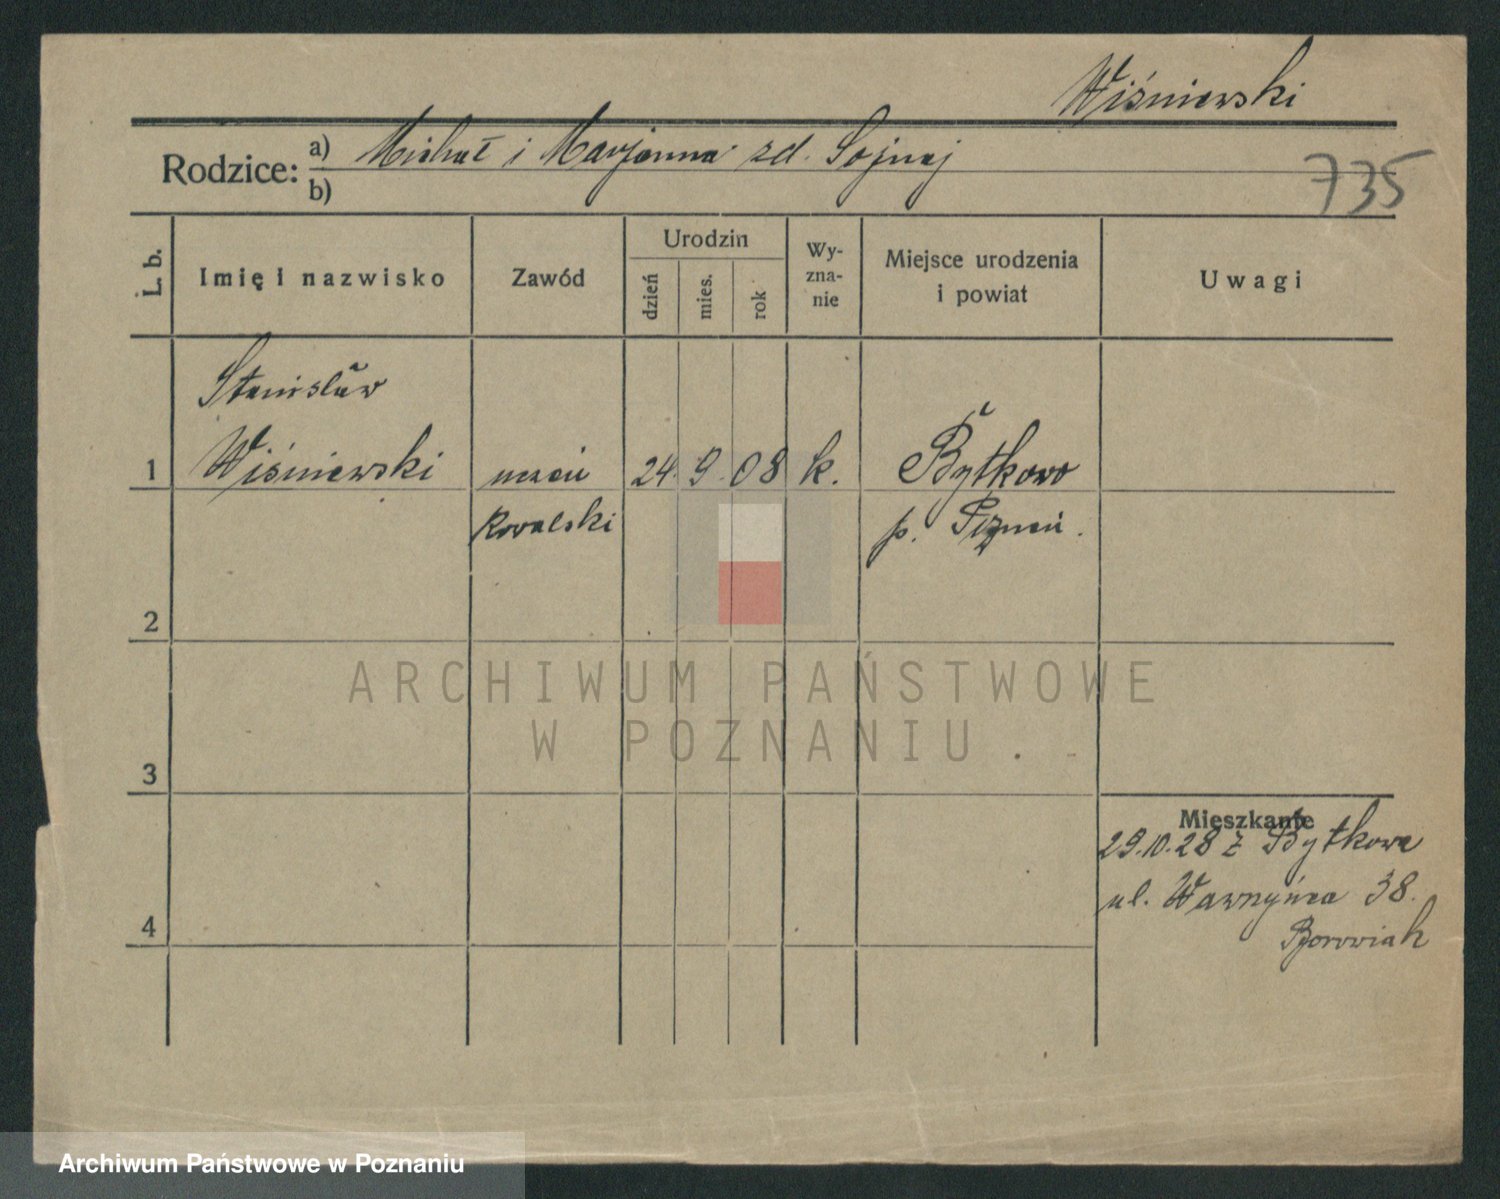 Wiśniewski
Rodzice: a) Michał i Marjanna zd. Sojnaj
b)
735
L. b.
Imię i nazwisko
Zawód
Urodzin
dzień
mies.
rok
Wy-
zna-
nie
Miejsce urodzenia
i powiat
Uwagi
Stanisław
1 Wiśniewski uczeń 24. 9. 08 k. Bytkowo
kowalski p. Poznań.
2
3
4
Mieszkanie
29.10.28 z Bytkowa
ul. Wawrzyńca 38.
Borowiak
ARCHIWUM PAŃSTWOWE
W POZNANIU
Archiwum Państwowe w Poznaniu